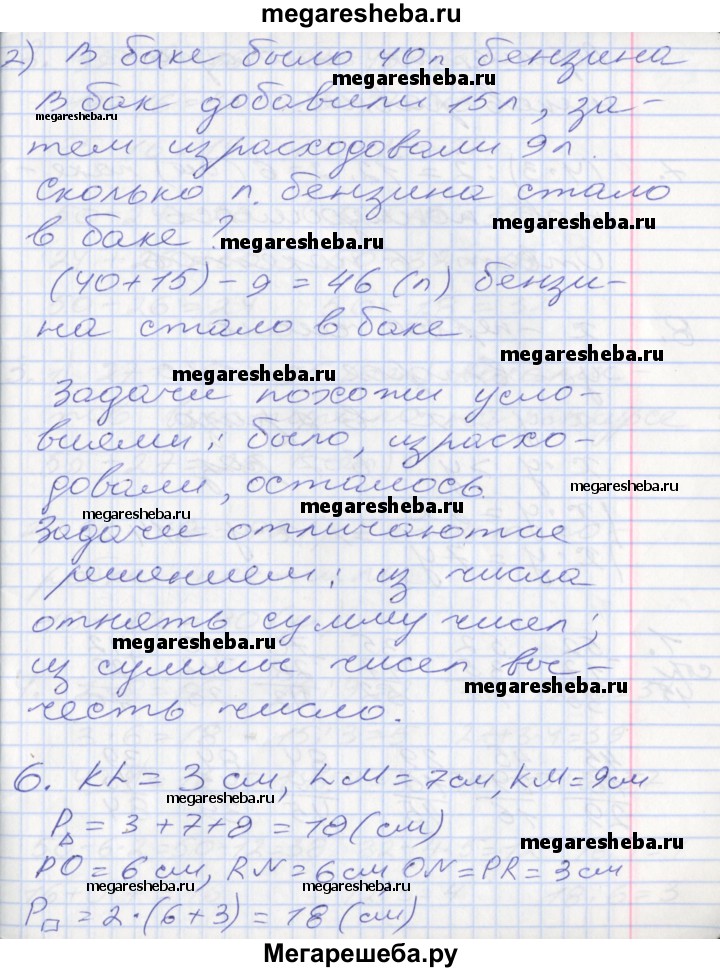 megaresheba.ru
2) В баке было 40л бензина
megaresheba.ru
В бак добавили 15л, за-
megaresheba.ru
тем израсходовали 9л.
Сколько л. бензина стало
megaresheba.ru
в баке?
megaresheba.ru
(40+15)-9=46 (л) бензи-
на стало в баке.
megaresheba.ru
megaresheba.ru
Задачи похожи усло-
виями: было, израсхо-
довали, осталось.
megaresheba.ru
megaresheba.ru
Задачи отличаются
решением: из числа
отнять сумму чисел;
megaresheba.ru
из суммы чисел выс-
megaresheba.ru
честь число.
6. KL = 3 см, LM = 7см, KM = 9см
megaresheba.ru
P△ = 3+7+9 = 19 (см)
megaresheba.ru
PO = 6 см, RN = 6 см, ON = PR = 3 см
megaresheba.ru
megaresheba.ru
P□ = 2·(6+3) = 18 (см)
Мегарешеба.ру